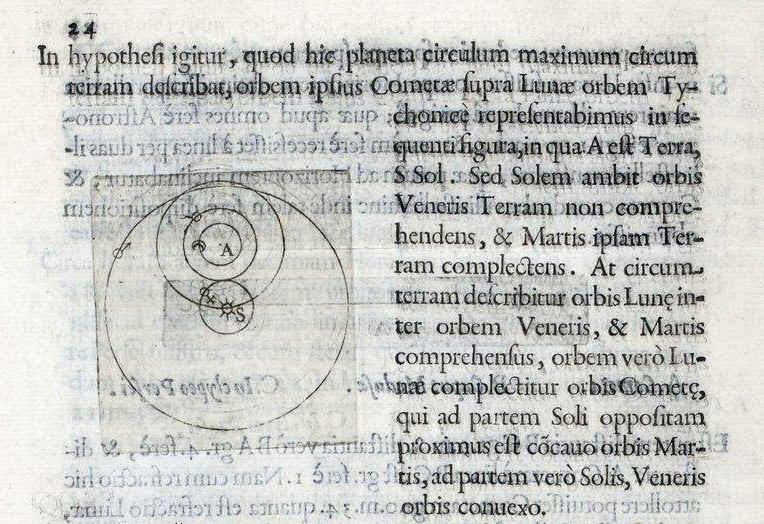 24
In hypothesi igitur, quod hic planeta circulum maximum circum
terram describat, orbem ipsius Cometæ supra Lunæ orbem Ty-
chonicę repręsentabimus in se-
quenti figura, in qua A est Terra,
S Sol. Sed Solem ambit orbis
Veneris Terram non compre-
hendens, & Martis ipsam Ter-
ram complectens. At circum-
terram describitur orbis Lunę in-
ter orbem Veneris, & Martis
comprehensus, orbem verò Lu-
næ complectitur orbis Cometę,
qui ad partem Soli oppositam
proximus est cõcauo orbis Mar-
tis, ad partem verò Solis, Veneris
orbis conuexo.
♂
☾
A
♀
S